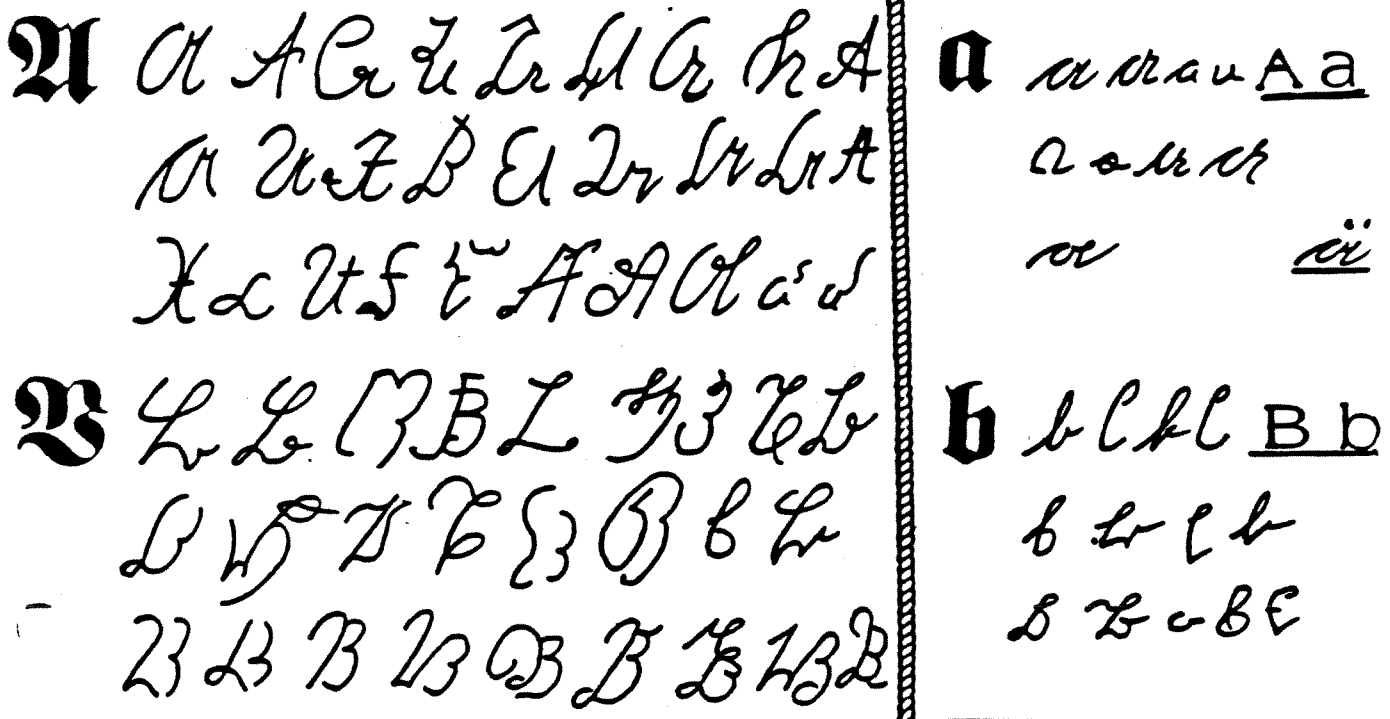 A A A A A A A A A A
A A A A A A A A A
A A A A A A A A A A
B B B B B B B B B B
B B B B B B B B
B B B B B B B B B
a a a a a A a
a a a a
a ä
b b b b b B b
b b b b
b b b b b